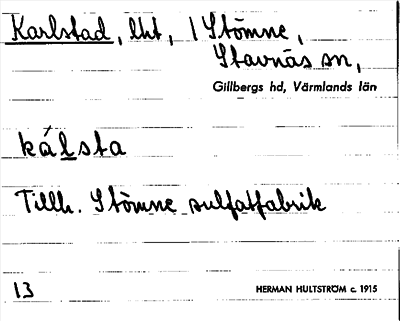 Karlstad, lht, 1 Stömne,
Stavnäs sn,
Gillbergs hd, Värmlands län
kálsta
Tillh. Stömne sulfatfabrik
13
HERMAN HULTSTRÖM c. 1915